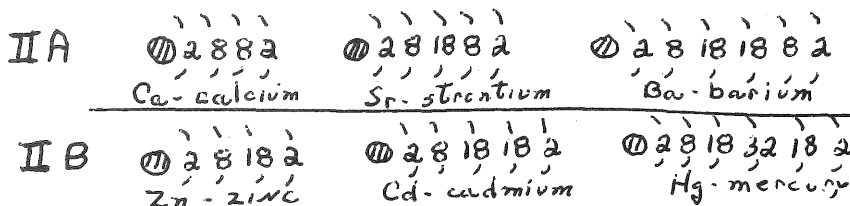 II A 2 8 8 2 2 8 18 8 2 2 8 18 18 8 2
Ca - calcium Sr - strontium Ba - barium
II B 2 8 18 2 2 8 18 18 2 2 8 18 32 18 2
Zn - zinc Cd - cadmium Hg - mercury